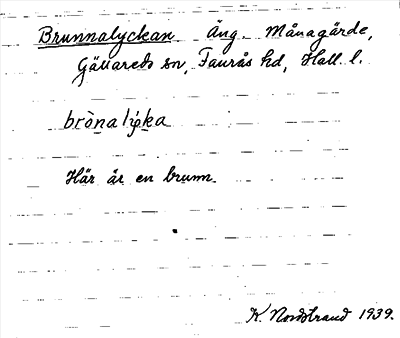 Brunnalyckan äng. Månagärde,
Gällareds sn, Faurås hd, Hall. l.
brònalýka
Här är en brunn.
K. Nordstrand 1939.